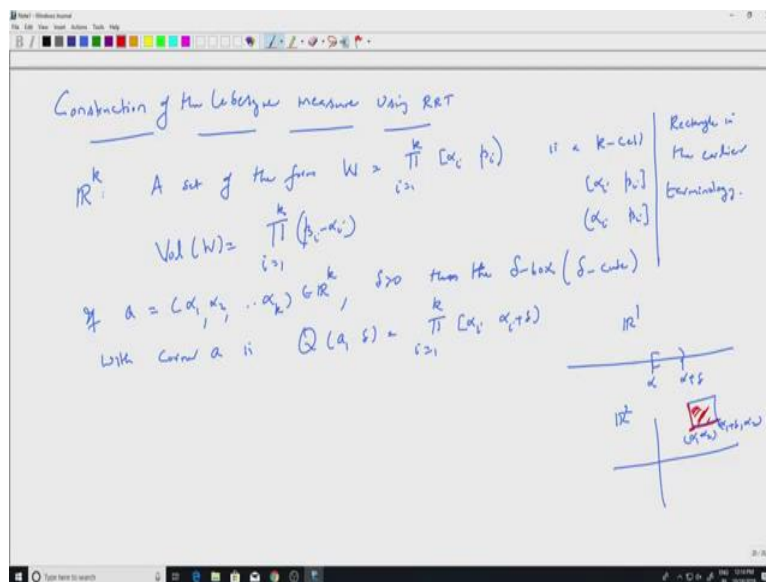 Note1 - Windows Journal
File Edit View Insert Actions Tools Help
Construction of the Lebesgue measure using RRT
ℝ^k: A set of the form W = ∏_{i=1}^{k} [α_i β_i) is a k-cell
[α_i β_i]
(α_i β_i]
Rectangle in
the earlier
terminology.
Vol(W) = ∏_{i=1}^{k} (β_i - α_i)
If a = (α_1, α_2, .. α_k) ∈ ℝ^k, δ>0 then the δ-box (δ-cube)
with corner a is Q(a, δ) = ∏_{i=1}^{k} [α_i α_i+δ)
ℝ^1
α α+δ
ℝ^2
(α_1 α_2) (α_1+δ, α_2)
Type here to search